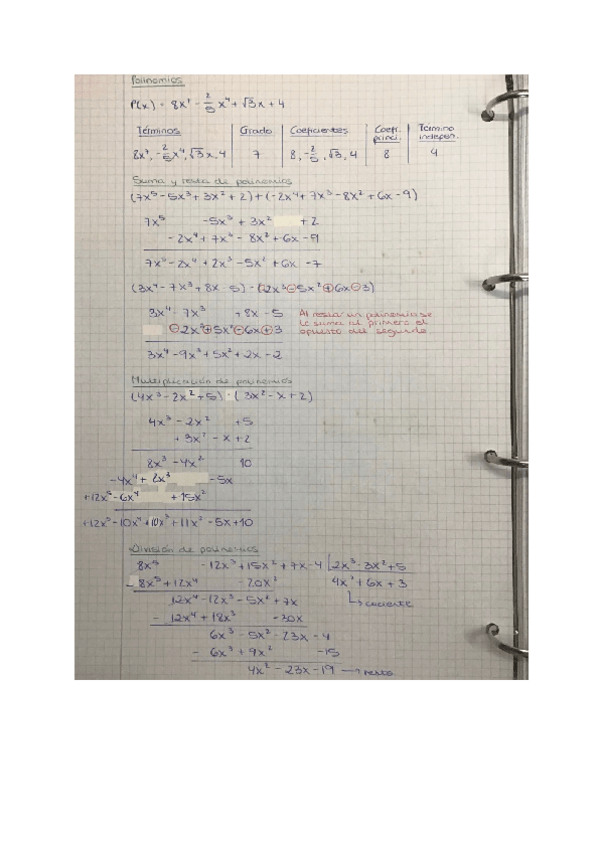 Polinomios
P(x) = 8x⁷ - 2/5 x⁴ + √3 x + 4
Términos | Grado | Coeficientes | Coefi. princi. | Término indepen.
8x⁷, -2/5 x⁴, √3 x, 4 | 7 | 8, -2/5, √3, 4 | 8 | 4
Suma y resta de polinomios
(7x⁵ - 5x³ + 3x² + 2) + (-2x⁴ + 7x³ - 8x² + 6x - 9)
7x⁵ -5x³ + 3x² + 2
- 2x⁴ + 7x³ - 8x² + 6x - 9
7x⁵ - 2x⁴ + 2x³ - 5x² + 6x - 7
(3x⁴ - 7x³ + 8x - 5) - (2x³ - 5x² + 6x - 3)
3x⁴ - 7x³ + 8x - 5
- 2x³ + 5x² - 6x + 3
3x⁴ - 9x³ + 5x² + 2x - 2
Al restar un polinomio se
le suma al primero el
opuesto del segundo
Multiplicación de polinomios
(4x³ - 2x² + 5) · (3x² - x + 2)
4x³ - 2x² + 5
+ 3x² - x + 2
8x³ - 4x² 10
- 4x⁴ + 2x³ - 5x
+12x⁵ - 6x⁴ + 15x²
+12x⁵ - 10x⁴ + 10x³ + 11x² - 5x + 10
División de polinomios
8x⁵ - 12x³ + 15x² + 7x - 4 | 2x³ - 3x² + 5
- 8x⁵ + 12x⁴ - 20x² 4x² + 6x + 3
12x⁴ - 12x³ - 5x² + 7x ↳ cociente
- 12x⁴ + 18x³ - 30x
6x³ - 5x² - 23x - 4
- 6x³ + 9x² - 15
4x² - 23x - 19 → resto